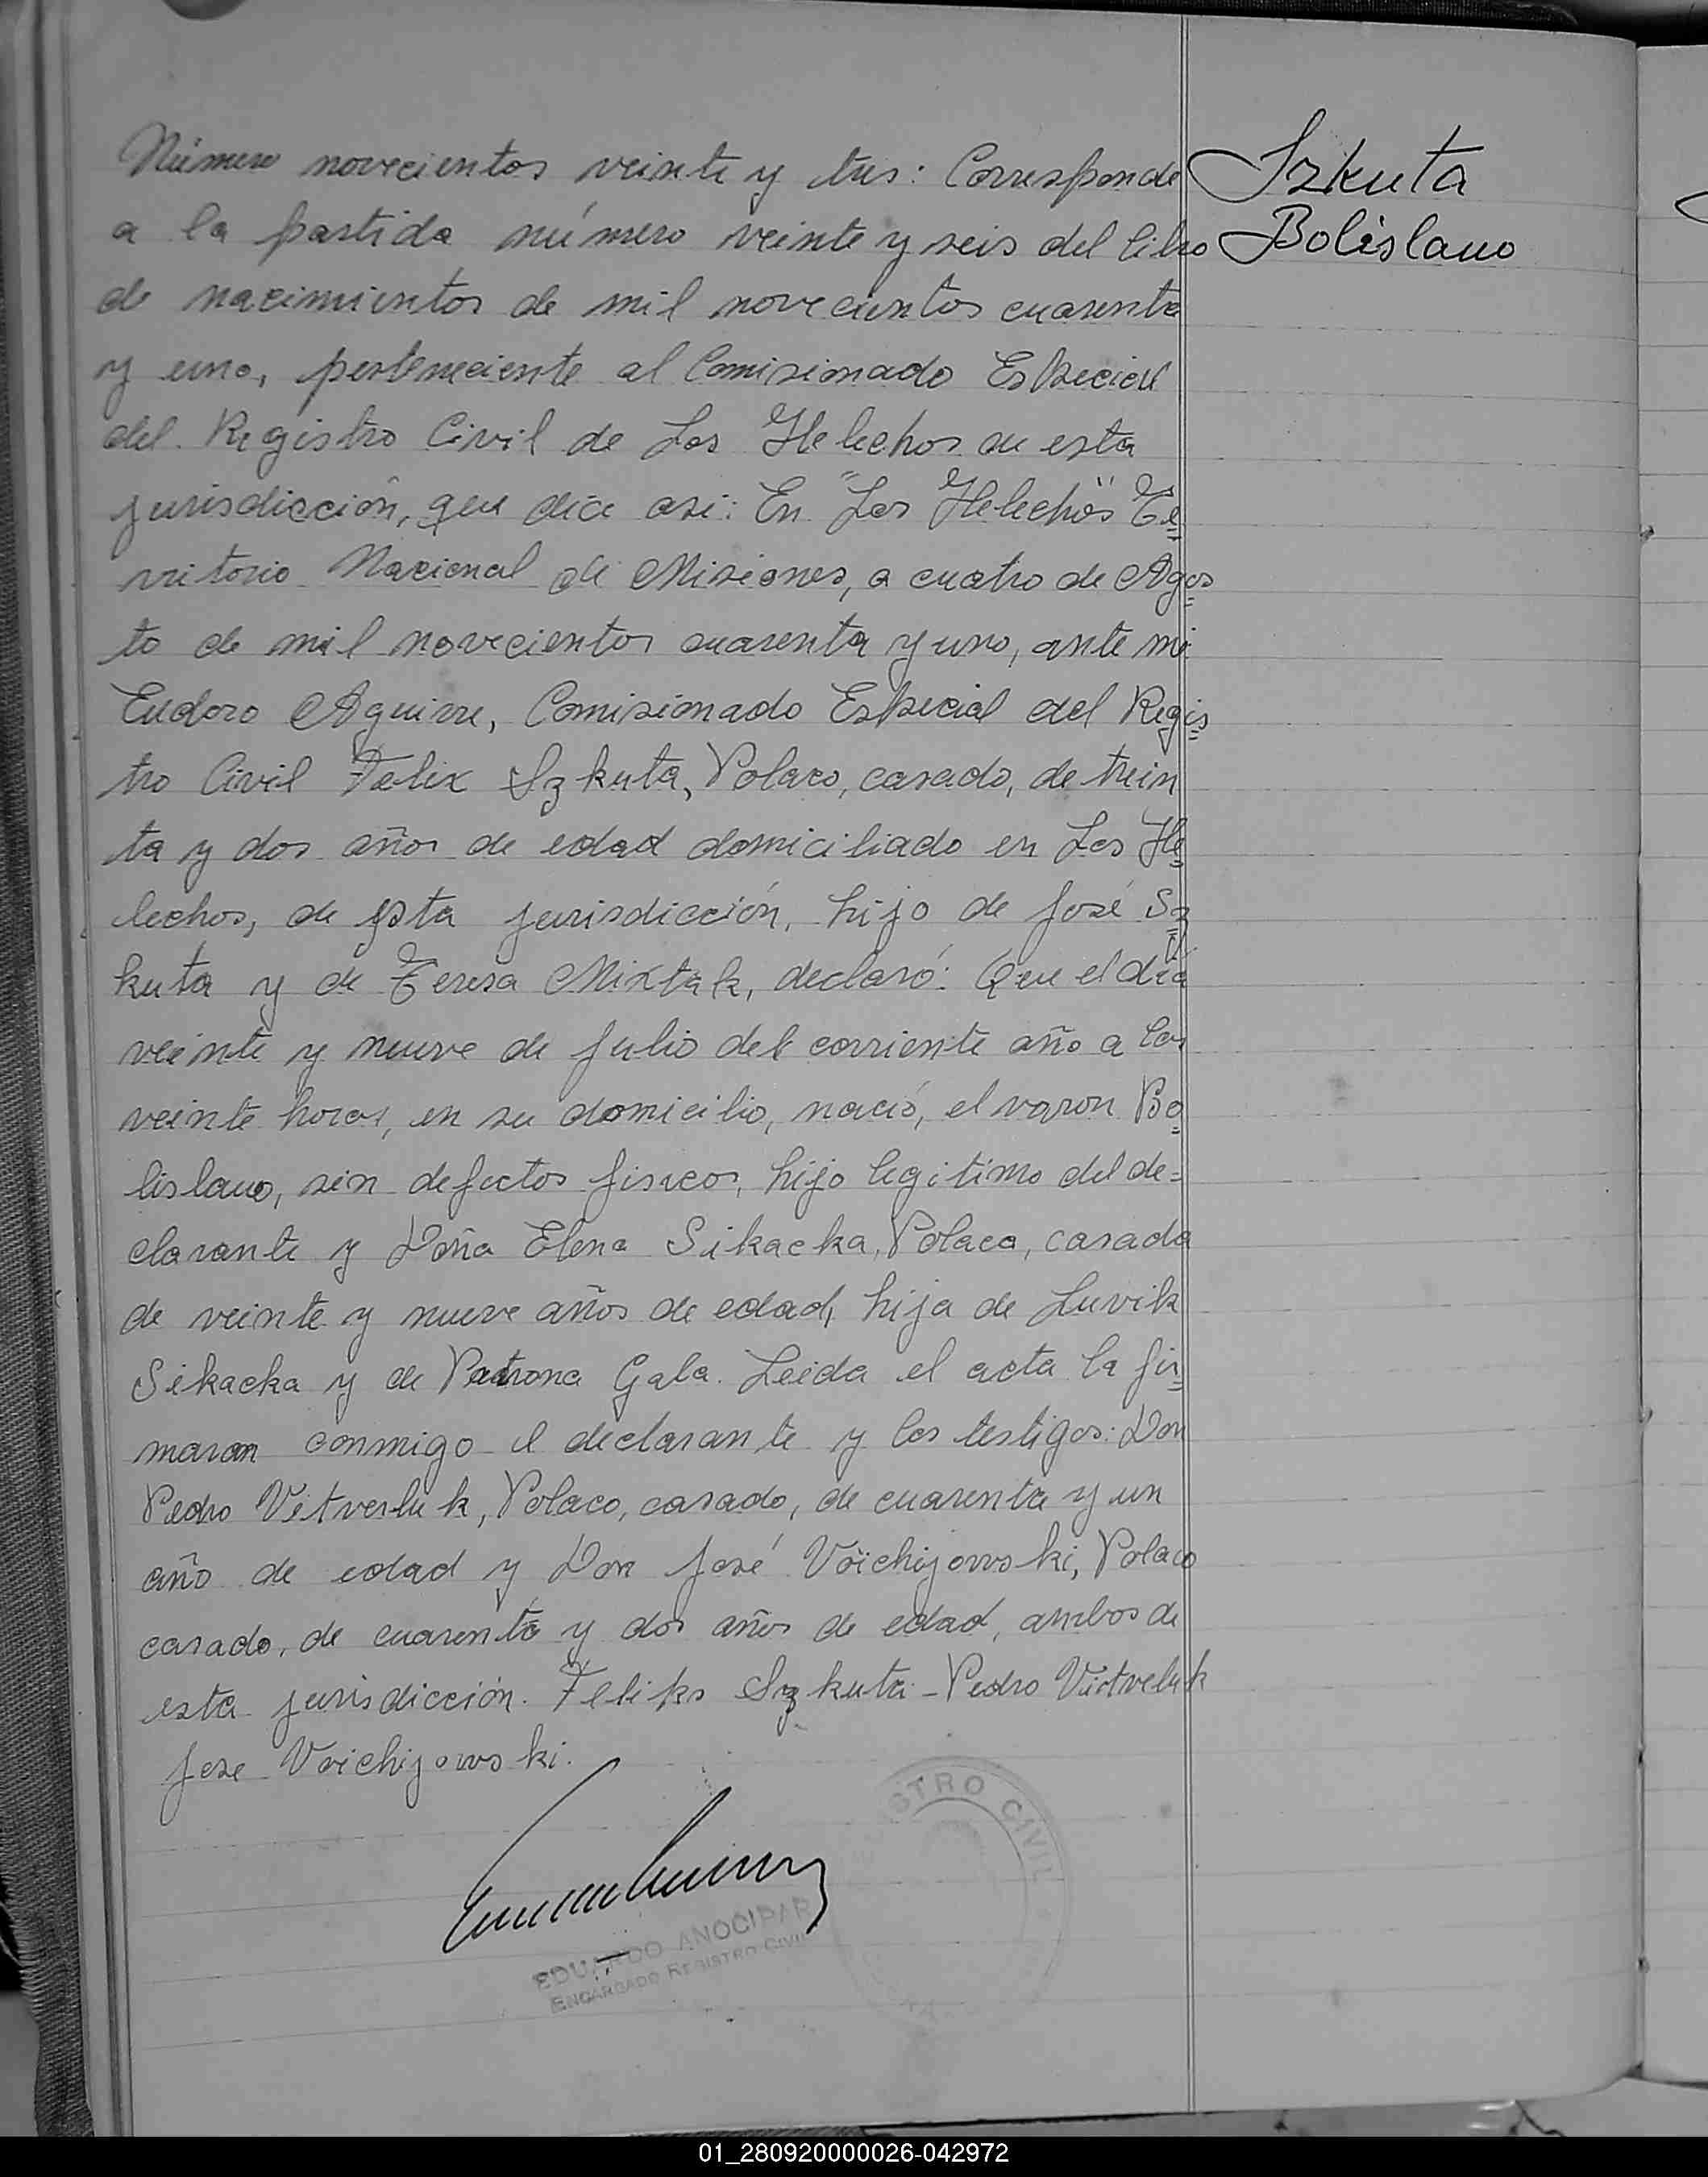 Número novecientos veinte y tres: Corresponde
a la partida número veinte y seis del libro
de nacimientos de mil novecientos cuarenta
y uno, perteneciente al Comisionado Especial
del Registro Civil de Los Helechos de esta
jurisdicción, que dice asi: En "Los Helechos" Te
rritorio Nacional de Misiones, a cuatro de Agos
to de mil novecientos cuarenta y uno, ante mi
Eudoro Aguirre, Comisionado Especial del Regis
tro Civil Felix Szkuta, Polaco, casado, de trein
ta y dos años de edad domiciliado en Los He
lechos, de esta jurisdicción, hijo de José Sz
kuta y de Teresa Mixtak, declaró: Que el día
veinte y nueve de Julio del corriente año a las
veinte horas, en su domicilio, nació, el varon Bo
lislauo, sin defectos fisicos, hijo legitimo del de=
clarante y Doña Elena Sikacka, Polaca, casada
de veinte y nueve años de edad, hija de Luvik
Sikacka y de Patrona Gala. Leida el acta la fir
maron conmigo el declarante y los testigos: Don
Pedro Vitverluk, Polaco, casado, de cuarenta y un
año de edad y Don José Voichijowski, Polaco
casado, de cuarenta y dos años de edad, ambos de
esta jurisdicción. Feliks Szkuta - Pedro Vitveluk
Jose Voichijowski.
Szkuta
Bolislauo
REGISTRO CIVIL
EDUARDO ANOCIBAR
ENCARGADO REGISTRO CIVIL
01_280920000026-042972